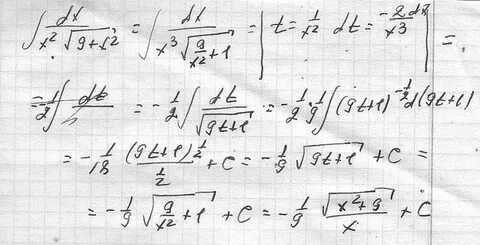 ∫ dx / (x² √(9+x²)) = ∫ dx / (x³ √(9/x² + 1)) = | t = 1/x² dt = -2dx/x³ | =
= -1/2 ∫ dt = -1/2 ∫ dt / √(9t+1) = -1/2 · 1/9 ∫ (9t+1)^(-1/2) d(9t+1)
= -1/18 (9t+1)^(1/2) / (1/2) + C = -1/9 √(9t+1) + C =
= -1/9 √(9/x² + 1) + C = -1/9 √(x²+9) / x + C